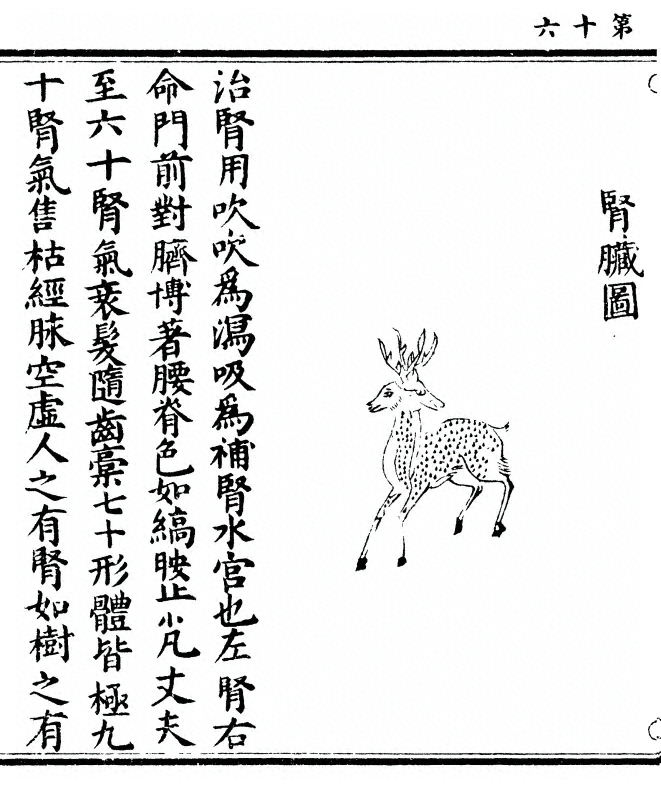 第十六
腎臟圖
治腎用吹吹為瀉吸為補腎水宮也左腎右
命門前對臍博著腰脊色如縞映止凡丈夫
至六十腎氣衰髮隨齒槀七十形體皆極九
十腎氣售枯經脉空虛人之有腎如樹之有